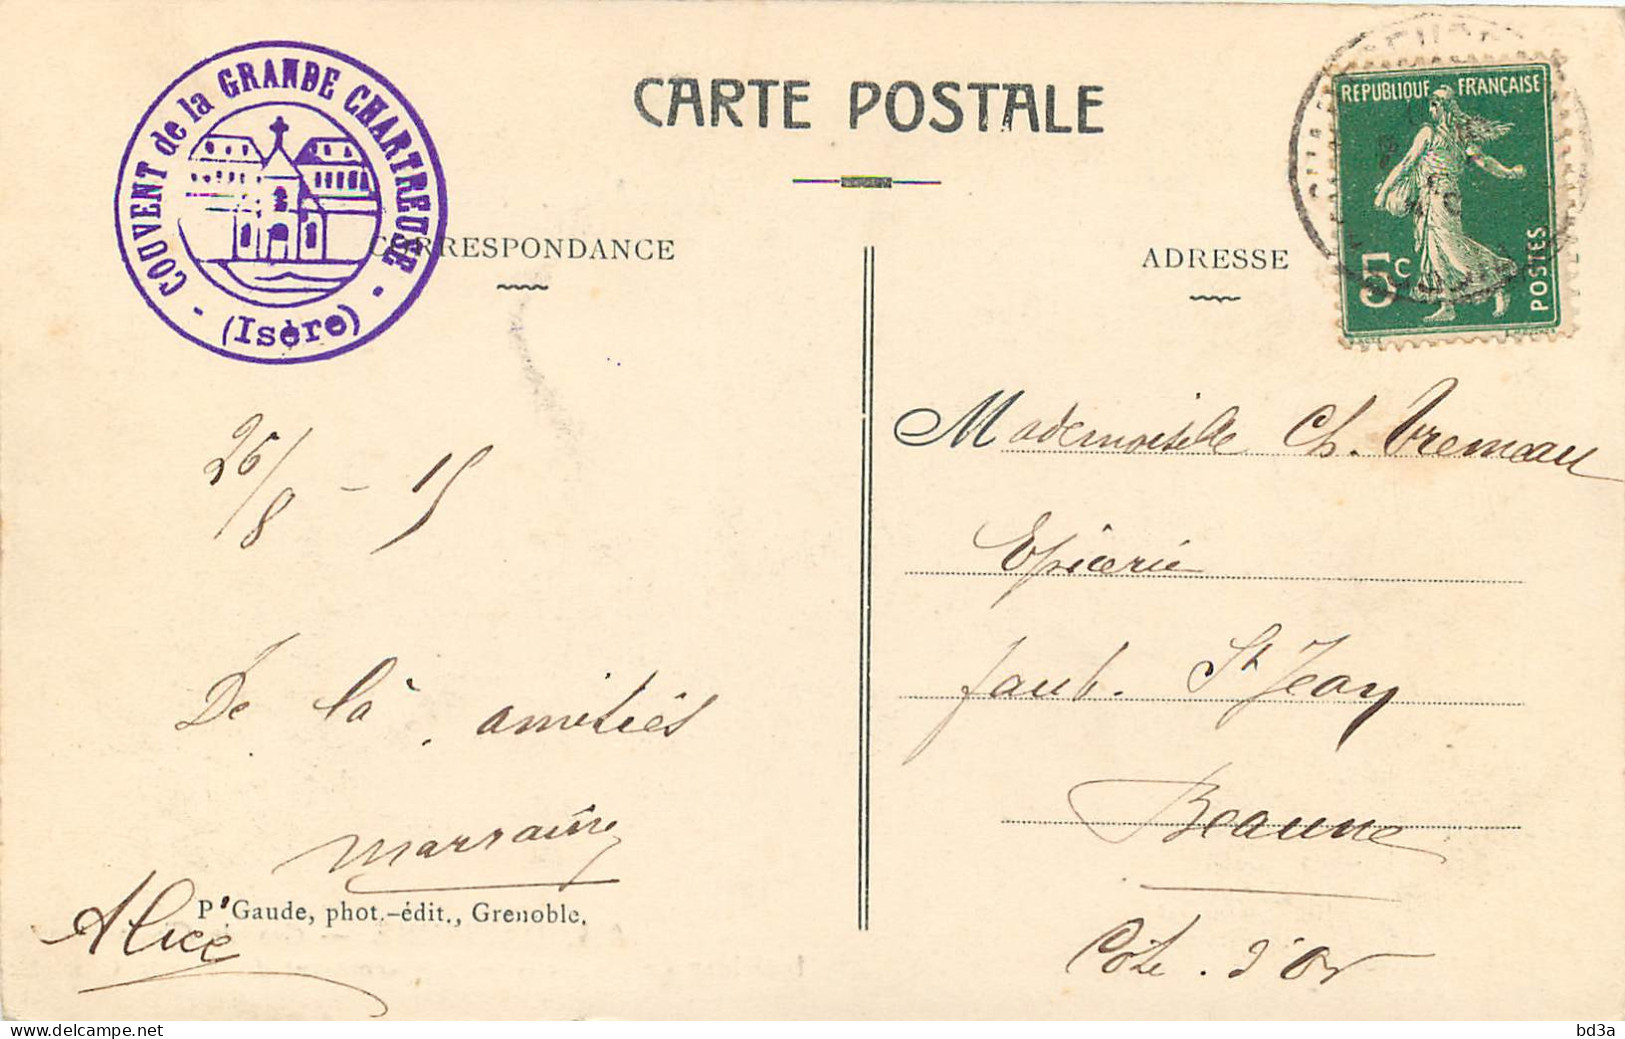 CARTE POSTALE
COUVENT de la GRANDE CHARTREUSE
- (Isère) -
REPUBLIQUE FRANÇAISE
5c
POSTES
CORRESPONDANCE
ADRESSE
26/8 - 15
De là amitiés
marraine
Alice
P. Gaude, phot.-édit., Grenoble.
Mademoiselle Ch. Tremeau
Epicerie
faub. St Jean
Beaune
Côte. d'Or
delcampe.net
bd3a